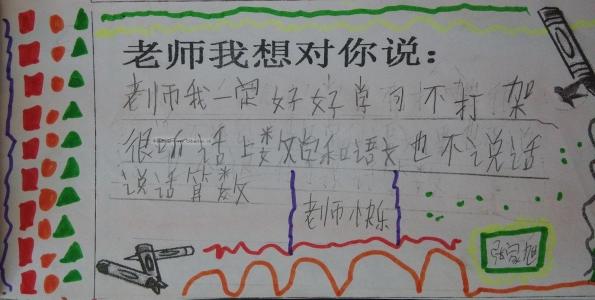 老师我想对你说：
老师我一定好好学习不打架
很听话上数学和语文也不说话
说话算数
老师快乐